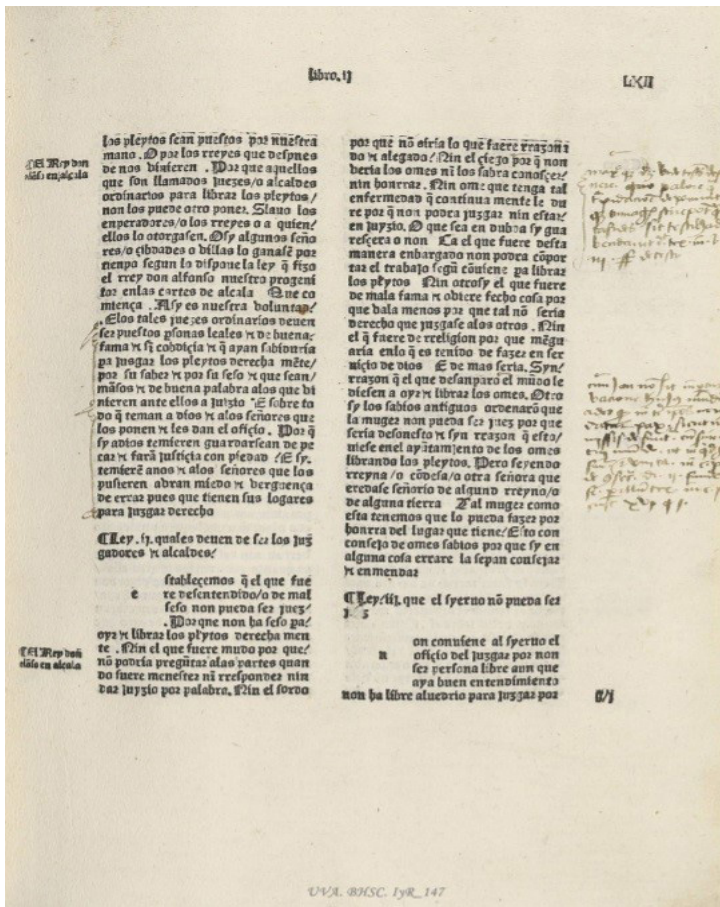 libro.ij
LXII
¶El Rey don
alõso en alcala
los pleytos sean puestos por nuestra
mano. O por los rreyes que despues
de nos vinieren . Por que aquellos
que son llamados juezes/o alcaldes
ordinarios para librar los pleytos/
non los puede otro poner. Slauo los
enperadores/o los rreyes o a quien/
ellos lo otorgasen. Osy algunos seño
res/o çibdades o villas lo ganasẽ por
tienpo segun lo dispone la ley q̃ fizo
el rrey don alfonso nuestro progeni
tor enlas cartes de alcala Que co
miença . Asy es nuestra voluntad/
Elos tales juezes ordinarios deuen
ser puestos psonas leales ⁊ de buena/
fama ⁊ sỹ cobdiçia ⁊ q̃ ayan sabiduria
pa jusgar los pleytos derecha mẽte/
por su saber ⁊ por su seso ⁊ que sean/
mãsos ⁊ de buena palabra alos que vi
nieren ante ellos a juyzio E sobre to
do q̃ teman a dios ⁊ alos señores que
los ponen ⁊ les dan el ofiçio. Por q̃
sy adios temieren guardarsean de pe
car ⁊ farã justiçia con piedad /E sy.
temierẽ anos ⁊ alos señores que los
pusieren abran miedo ⁊ verguença
de errar pues que tienen sus logares
para juzgar derecho
¶Ley .ij. quales deuen de ser los juz
gadores ⁊ alcaldes/
stableçemos q̃ el que fue
e re desentendido/o de mal
seso non pueda ser juez/
Por que non ha seso pa/
oyr ⁊ librar los plytos derecha men
te . Nin el que fuere mudo por que/
nõ podria pregũtar alas partes quan
do fuere menester nĩ rresponder nin
dar juyzio por palabra. Nin el sordo
¶El Rey don
alõso en alcala
por que nõ oiria lo que fuere rrazon a
do ⁊ alegado/ Nin el çiego por q̃ non
veria los omes nĩ los sabra conosçer/
nin honrrar. Nin ome que tenga tal
enfermedad q̃ continua mente le du
re por q̃ non podra juzgar nin estar/
en juyzio. O que sea en dubda sy gua
resçera o non Ca el que fuere desta
manera enbargado non podra cõpor
tar el trabajo segũ cõuiene pa librar
los plytos Nin otrosy el que fuere
de mala fama ⁊ obiere fecho cosa por
que vala menos por que tal nõ seria
derecho que juzgase alos otros . Nin
el q̃ fuere de rreligion por que mẽgu
aria enlo q̃ es tenido de fazer en ser
uiçio de dios E de mas seria. Syn/
rrazon q̃ el que desanparo el mũdo le
diesen a oyr ⁊ librar los omes. Otro
sy los sabios antiguos ordenarõ que
la muger non pueda ser juez por que
seria desonesto ⁊ syn rrazon q̃ esto/
uiese enel ayũtamiento de los omes
librando los pleytos. Pero seyendo
rreyna /o cõdesa/o otra señora que
eredase señorio de algund rreyno/o
de alguna tierra Tal muger como
esta tenemos que lo pueda fazer por
honrra del lugar que tiene/ Esto con
consejo de omes sabios por que sy en
alguna cosa errare la sepan consejar
⁊ enmendar
¶Ley/iij. que el syerno nõ pueda ser
on conuiene al syeruo el
n ofiçio del juzgar por non
ser persona libre aun que
aya buen entendimiento
non ha libre aluedrio para juzgar por
UVA. BHSC. IyR_147